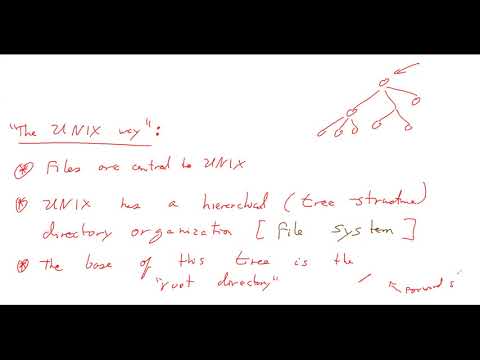 "The UNIX way":
* Files are central to UNIX
* UNIX has a hierarchical (tree structure)
directory organization [File system]
* The base of this tree is the
"root directory" / ← Forward s